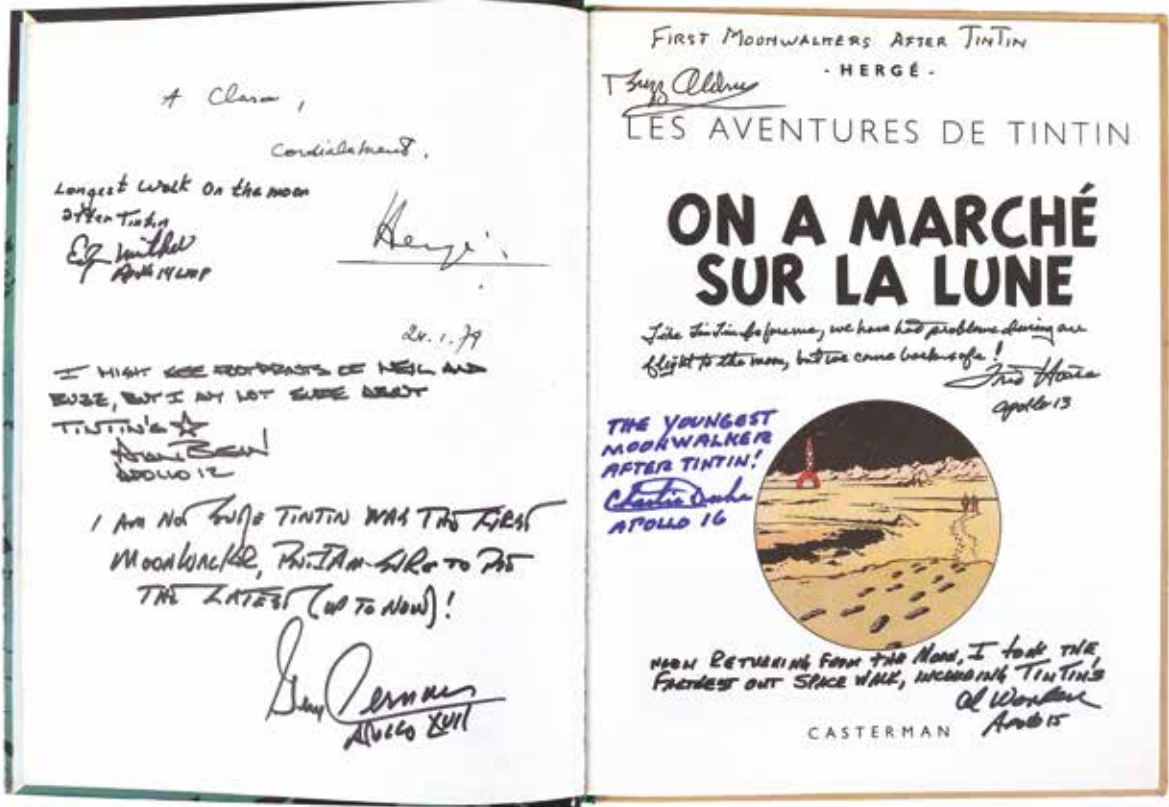 A Clara,
Cordialement,
Longest Walk On the moon
after Tintin
Ed Mitchell
Apollo 14 LMP
Hergé.
24.1.79
I MIGHT SEE FOOTPRINTS OF NEIL AND
BUZZ, BUT I AM NOT SURE ABOUT
TINTIN'S
Alan BEAN
APOLLO 12
I AM NOT SURE TINTIN WAS THE FIRST
MOONWALKER, BUT I AM SURE TO BE
THE LATEST (UP TO NOW)!
Gene Cernan
APOLLO XVII
FIRST MOONWALKERS AFTER TINTIN
- HERGÉ -
Buzz Aldrin
LES AVENTURES DE TINTIN
ON A MARCHÉ
SUR LA LUNE
Like Tintin before me, we have had problems during our
flight to the moon, but we came back safe!
Fred Haise
Apollo 13
THE YOUNGEST
MOONWALKER
AFTER TINTIN!
Charlie Duke
APOLLO 16
WHEN RETURNING FROM THE MOON, I TOOK THE
FARTHEST OUT SPACE WALK, INCLUDING TINTIN'S
Al Worden
Apollo 15
CASTERMAN